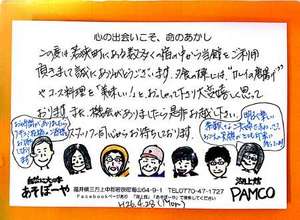 心の出会いこそ、命のあかし
この度は若狭町にある数多くの宿の中から当館をご利用
頂きまして誠にありがとうございます。夕食の際には、"カレイの唐揚げ"
やコース料理を「美味しい!」と、おっしゃって下さり大変嬉しく思って
おります。また、機会がありましたら是非お越し下さい。
スタッフ一同心からお待ちしております。
自然に大の字
あそぼーや
湖上館
PAMCO
福井県三方上中郡若狭町海山64-9-1 TEL0770-47-1727
Facebookページあり 「湖上館」「あそぼーや」で検索してください
H26.4.28(Mon)